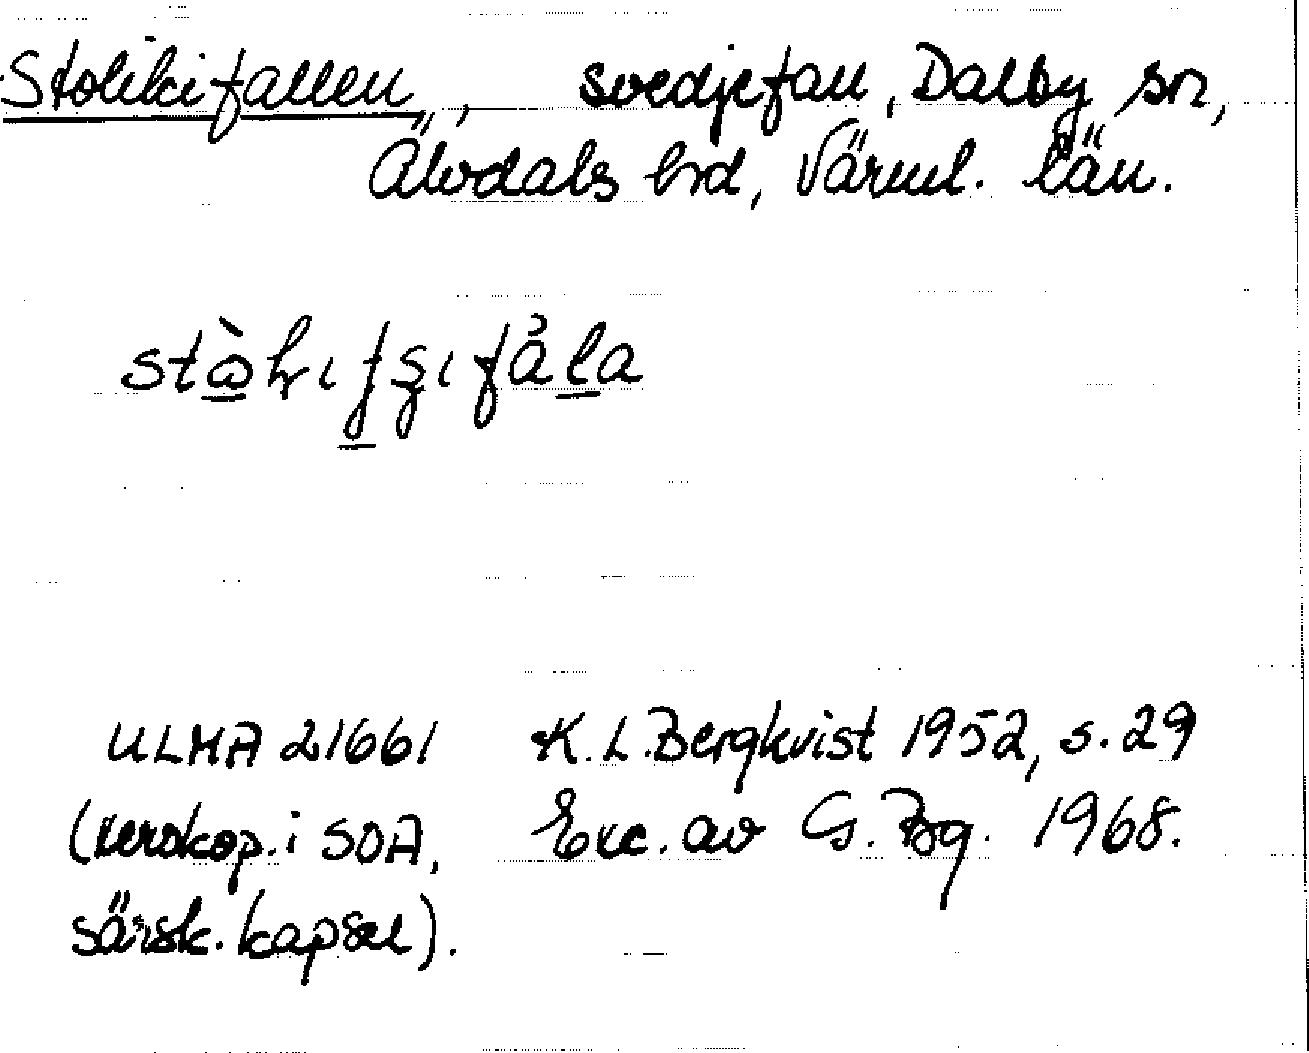 Stolikifallen, svedjefall, Dalby sn,
Älvdals hrd, Värml. län.
ULMA 21661 K. L. Bergkvist 1952, s. 29
(xerokop. i SOA, Exc. av G. Bg. 1968.
särsk. kapsel).